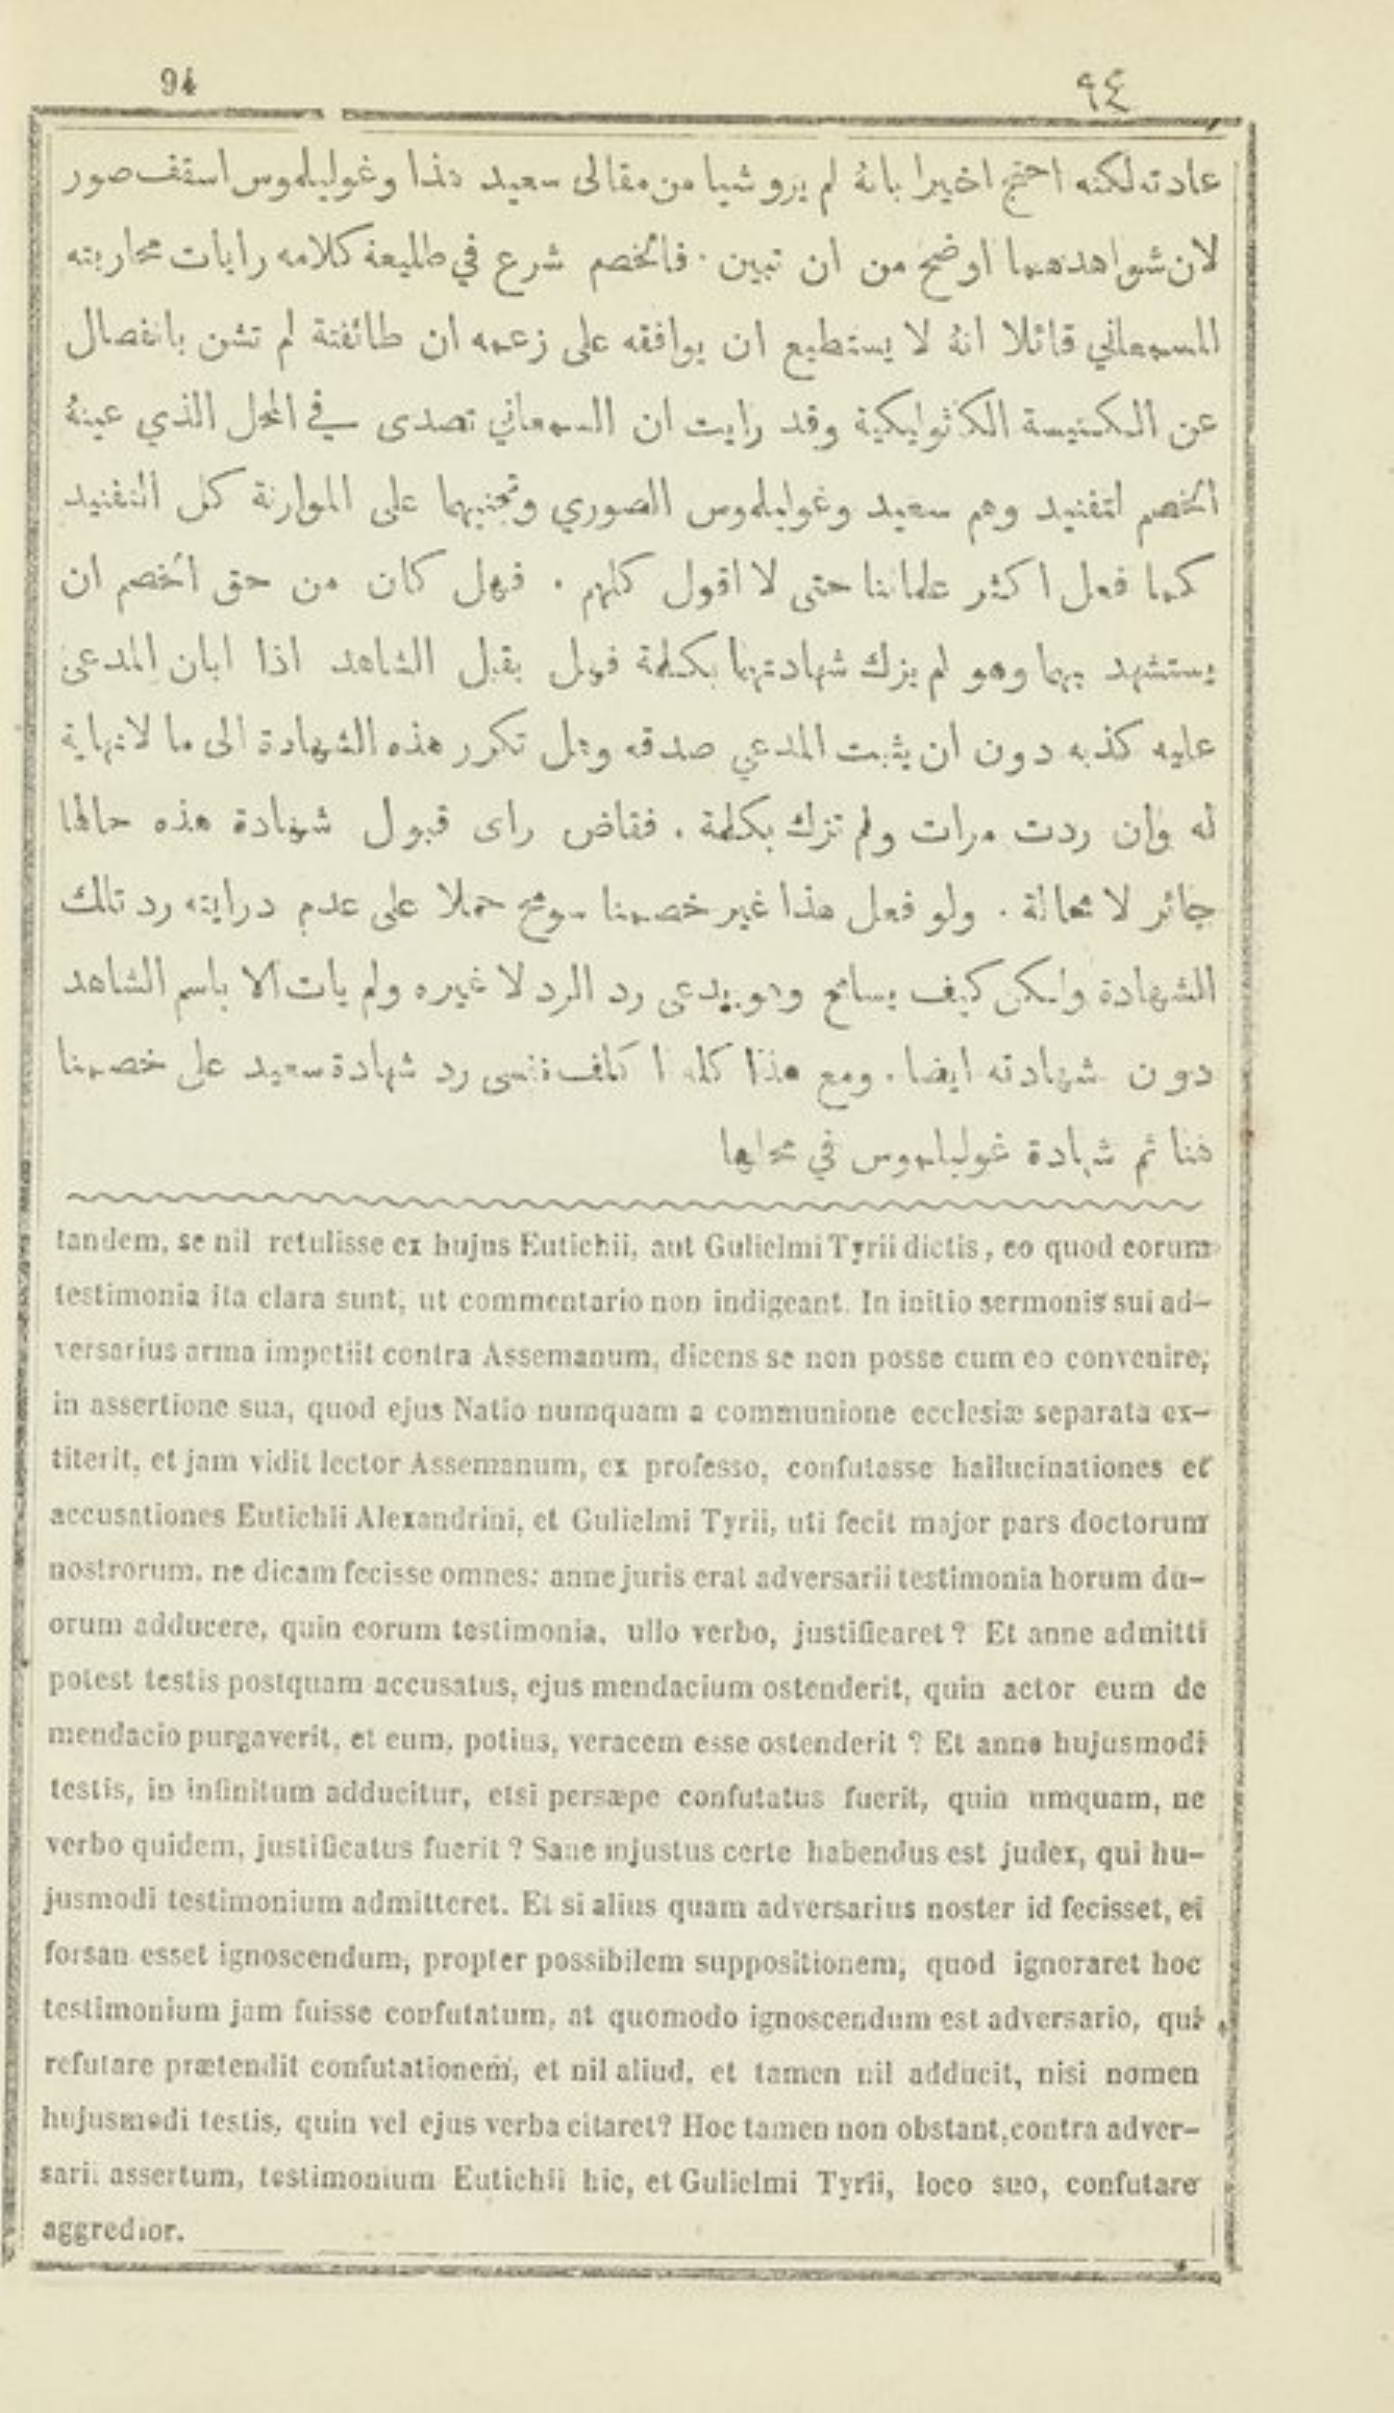 94
٩٤
عادته لكنه احتج اخيرا بانهُ لم يرو شيا من مقالى سعيد هذا وغوليلموس اسقف صور
لان شواهدهما اوضح من ان تبين . فالخصم شرع في طليعة كلامه رايات محاربته
السمعاني قائلا انهُ لا يستطيع ان يوافقه على زعمه ان طائفتة لم تشن بانفصال
عن الكنيسة الكاثوليكية وقد رايت ان السمعاني تصدى في المحل الذي عينهُ
الخصم لتفنيد وهم سعيد وغوليلموس الصوري وتجنيهما على الموارنة كل التفنيد
كما فعل اكثر علمائنا حتى لا اقول كلهم . فهل كان من حق الخصم ان
يستشهد بهما وهو لم يزك شهادتهما بكلمة فهل يقبل الشاهد اذا ابان المدعى
عليه كذبه دون ان يثبت المدعي صدقه وهل تكرر هذه الشهادة الى ما لا نهاية
له وان ردت مرات ولم تزك بكلمة . فقاض راى قبول شهادة هذه حالها
جائر لا محالة . ولو فعل هذا غير خصمنا سومح حملا على عدم درايته رد تلك
الشهادة ولكن كيف يسامح وهو يدعى رد الرد لا غيره ولم يات الا باسم الشاهد
دون شهادته ايضا . ومع هذا كله اكلف نفسى رد شهادة سعيد على خصمنا
هنا ثم شهادة غوليلموس في محلها
tandem, se nil retulisse ex hujus Eutichii, aut Gulielmi Tyrii dictis, eo quod eorum
testimonia ita clara sunt, ut commentario non indigeant. In initio sermonis sui ad-
versarius arma impetiit contra Assemanum, dicens se non posse cum eo convenire,
in assertione sua, quod ejus Natio numquam a communione ecclesiæ separata ex-
titerit, et jam vidit lector Assemanum, ex professo, confutasse hallucinationes et
accusationes Eutichii Alexandrini, et Gulielmi Tyrii, uti fecit major pars doctorum
nostrorum, ne dicam fecisse omnes: anne juris erat adversarii testimonia horum du-
orum adducere, quin eorum testimonia, ullo verbo, justificaret ? Et anne admitti
potest testis postquam accusatus, ejus mendacium ostenderit, quin actor eum de
mendacio purgaverit, et eum, potius, veracem esse ostenderit ? Et anne hujusmodi
testis, in infinitum adducitur, etsi persæpe confutatus fuerit, quin umquam, ne
verbo quidem, justificatus fuerit ? Sane injustus certe habendus est judex, qui hu-
jusmodi testimonium admitteret. Et si alius quam adversarius noster id fecisset, ei
forsan esset ignoscendum, propter possibilem suppositionem, quod ignoraret hoc
testimonium jam fuisse confutatum, at quomodo ignoscendum est adversario, qui
refutare prætendit confutationem, et nil aliud, et tamen nil adducit, nisi nomen
hujusmodi testis, quin vel ejus verba citaret? Hoc tamen non obstant, contra adver-
sarii assertum, testimonium Eutichii hic, et Gulielmi Tyrii, loco suo, confutare
aggredior.